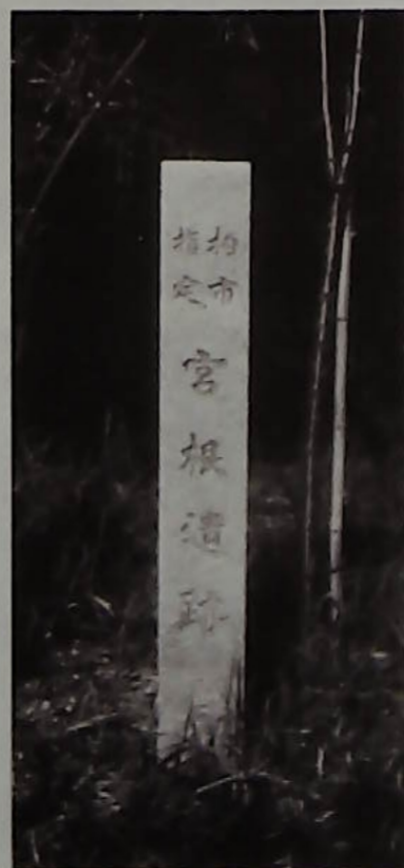 柏市
指定
宮根遺跡